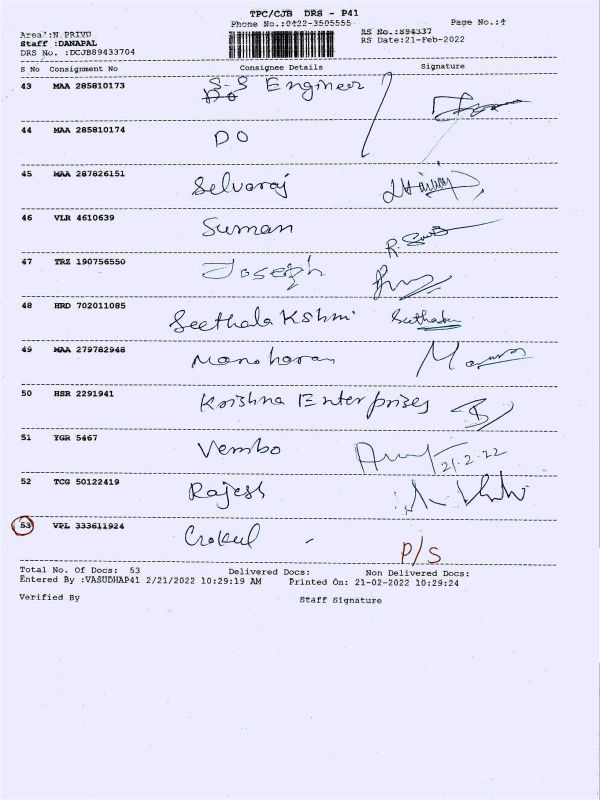 TPC/CJB DRS - P41
Phone No.:0422-3505555 Page No.:4
Area :N.PRIVU RS No.:894337
Staff :DANAPAL RS Date:21-Feb-2022
DRS No. :DCJB89433704
S No Consignment No Consignee Details Signature
43 MAA 285810173 S-S Engineer
DO
44 MAA 285810174 DO
45 MAA 287826151 Selvaraj
46 VLR 4610639 Suman
47 TRZ 190756550 Joseph
48 HRD 702011085 Seethalakshmi
49 MAA 279782948 Manoharan
50 HSR 2291941 Krishna Enterprises
51 YGR 5467 Vembo
21.2.22
52 TCG 50122419 Rajesh
53 VPL 333611924 P/S
Total No. Of Docs: 53 Delivered Docs: Non Delivered Docs:
Entered By :VASUDHAP41 2/21/2022 10:29:19 AM Printed On: 21-02-2022 10:29:24
Verified By Staff Signature